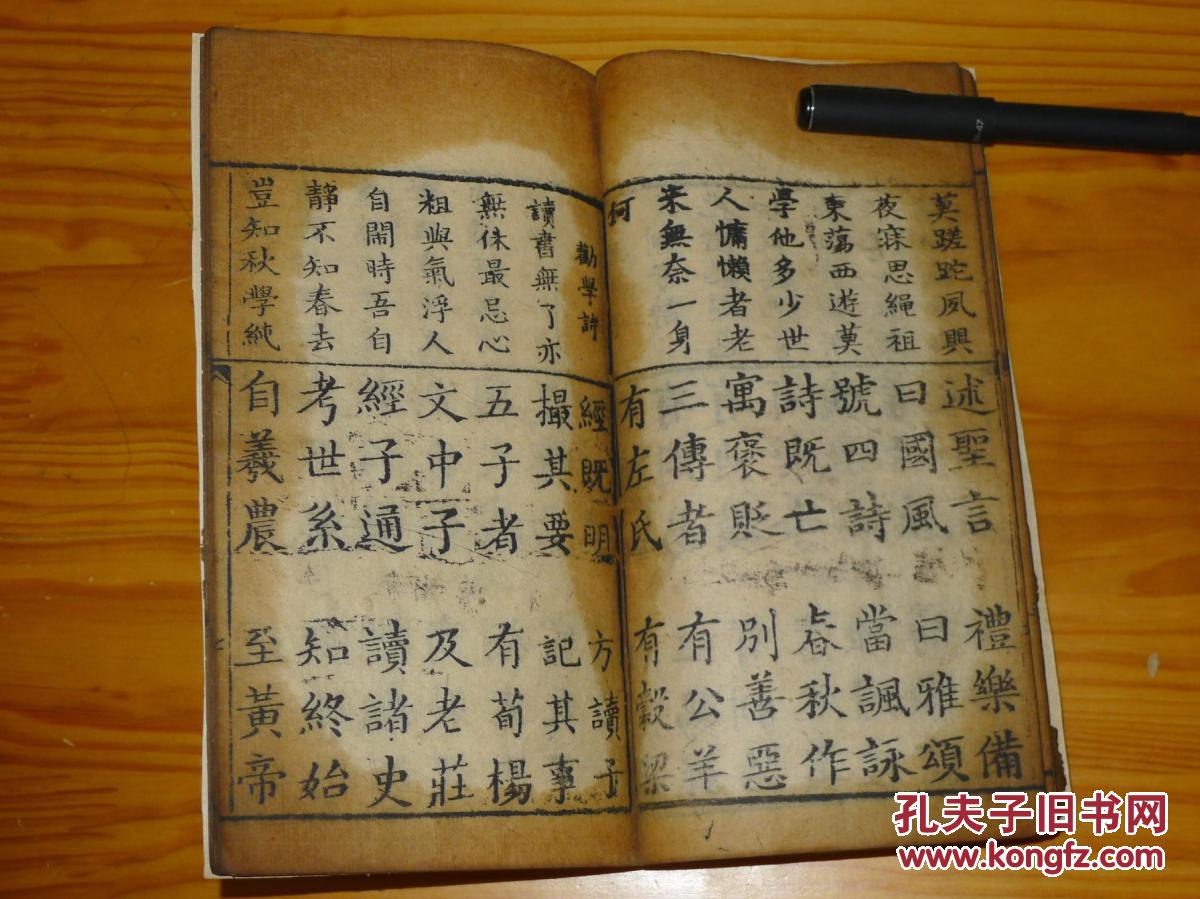 莫蹉跎夙興
夜寐思繩祖
東蕩西遊莫
學他多少世
人慵懶者老
來無奈一身
述聖言 禮樂備
曰國風 曰雅頌
號四詩 當諷詠
詩既亡 春秋作
寓褒貶 別善惡
三傳者 有公羊
有左氏 有穀梁
勸學詩
讀書無了亦
無休最忌心
粗與氣浮人
自閙時吾自
靜不知春去
豈知秋學純
經既明 方讀子
撮其要 記其事
五子者 有荀楊
文中子 及老莊
經子通 讀諸史
考世系 知終始
自羲農 至黃帝
孔夫子旧书网
www.kongfz.com